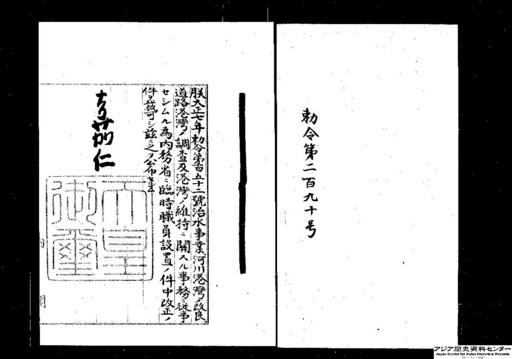 勅令第二百九十号
朕大正七年勅令第百五十二號治水事業河川港灣ノ改良
道路港灣ノ調査及港灣ノ維持ニ關スル事務ニ從事
セシムル為内務省ニ臨時職員設置ノ件中改正ノ
件ヲ裁可シ茲ニ之ヲ公布セシム
嘉仁
天皇
御璽
アジア歴史資料センター
Japan Center for Asian Historical Records